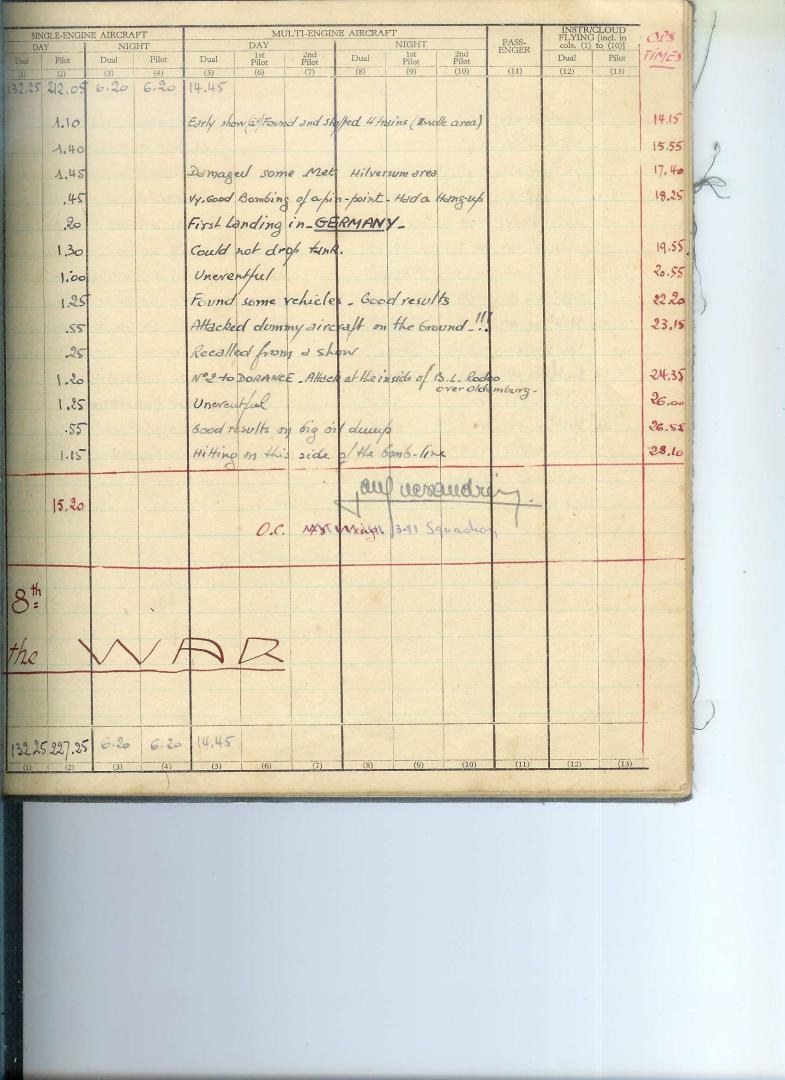 SINGLE-ENGINE AIRCRAFT MULTI-ENGINE AIRCRAFT PASS-ENGER INSTR/CLOUD FLYING [incl. in cols. (1) to (10)] OPS TIMES
DAY NIGHT DAY NIGHT
Dual Pilot Dual Pilot Dual 1st Pilot 2nd Pilot Dual 1st Pilot 2nd Pilot Dual Pilot
(1) (2) (3) (4) (5) (6) (7) (8) (9) (10) (11) (12) (13)
132.25 212.05 6.20 6.20 14.45
1.10 Early show Found and stopped 4 trains (Zwolle area) 14.15
1.40 15.55
1.45 Damaged some Met Hilversum area 17.40
.45 Vy. Good Bombing of a pin-point - Had a Hang-up 18.25
.20 First Landing in - GERMANY -
1.30 Could not drop tank. 19.55
1.00 Uneventful 20.55
1.25 Found some vehicles - Good results 22.20
.55 Attacked dummy aircraft on the Ground - !!! 23.15
.25 Recalled from a show
1.20 N°2 to DORANCE - Attack at the inside of B.L. Rodeo over Oldemburg - 24.35
1.25 Uneventful 26.00
.55 Good results on big oil dump 26.55
1.15 Hitting on this side of the bomb-line 28.10
15.20
O.C. 341 Squadron
8th
the WAR
132.25 227.25 6.20 6.20 14.45
(1) (2) (3) (4) (5) (6) (7) (8) (9) (10) (11) (12) (13)